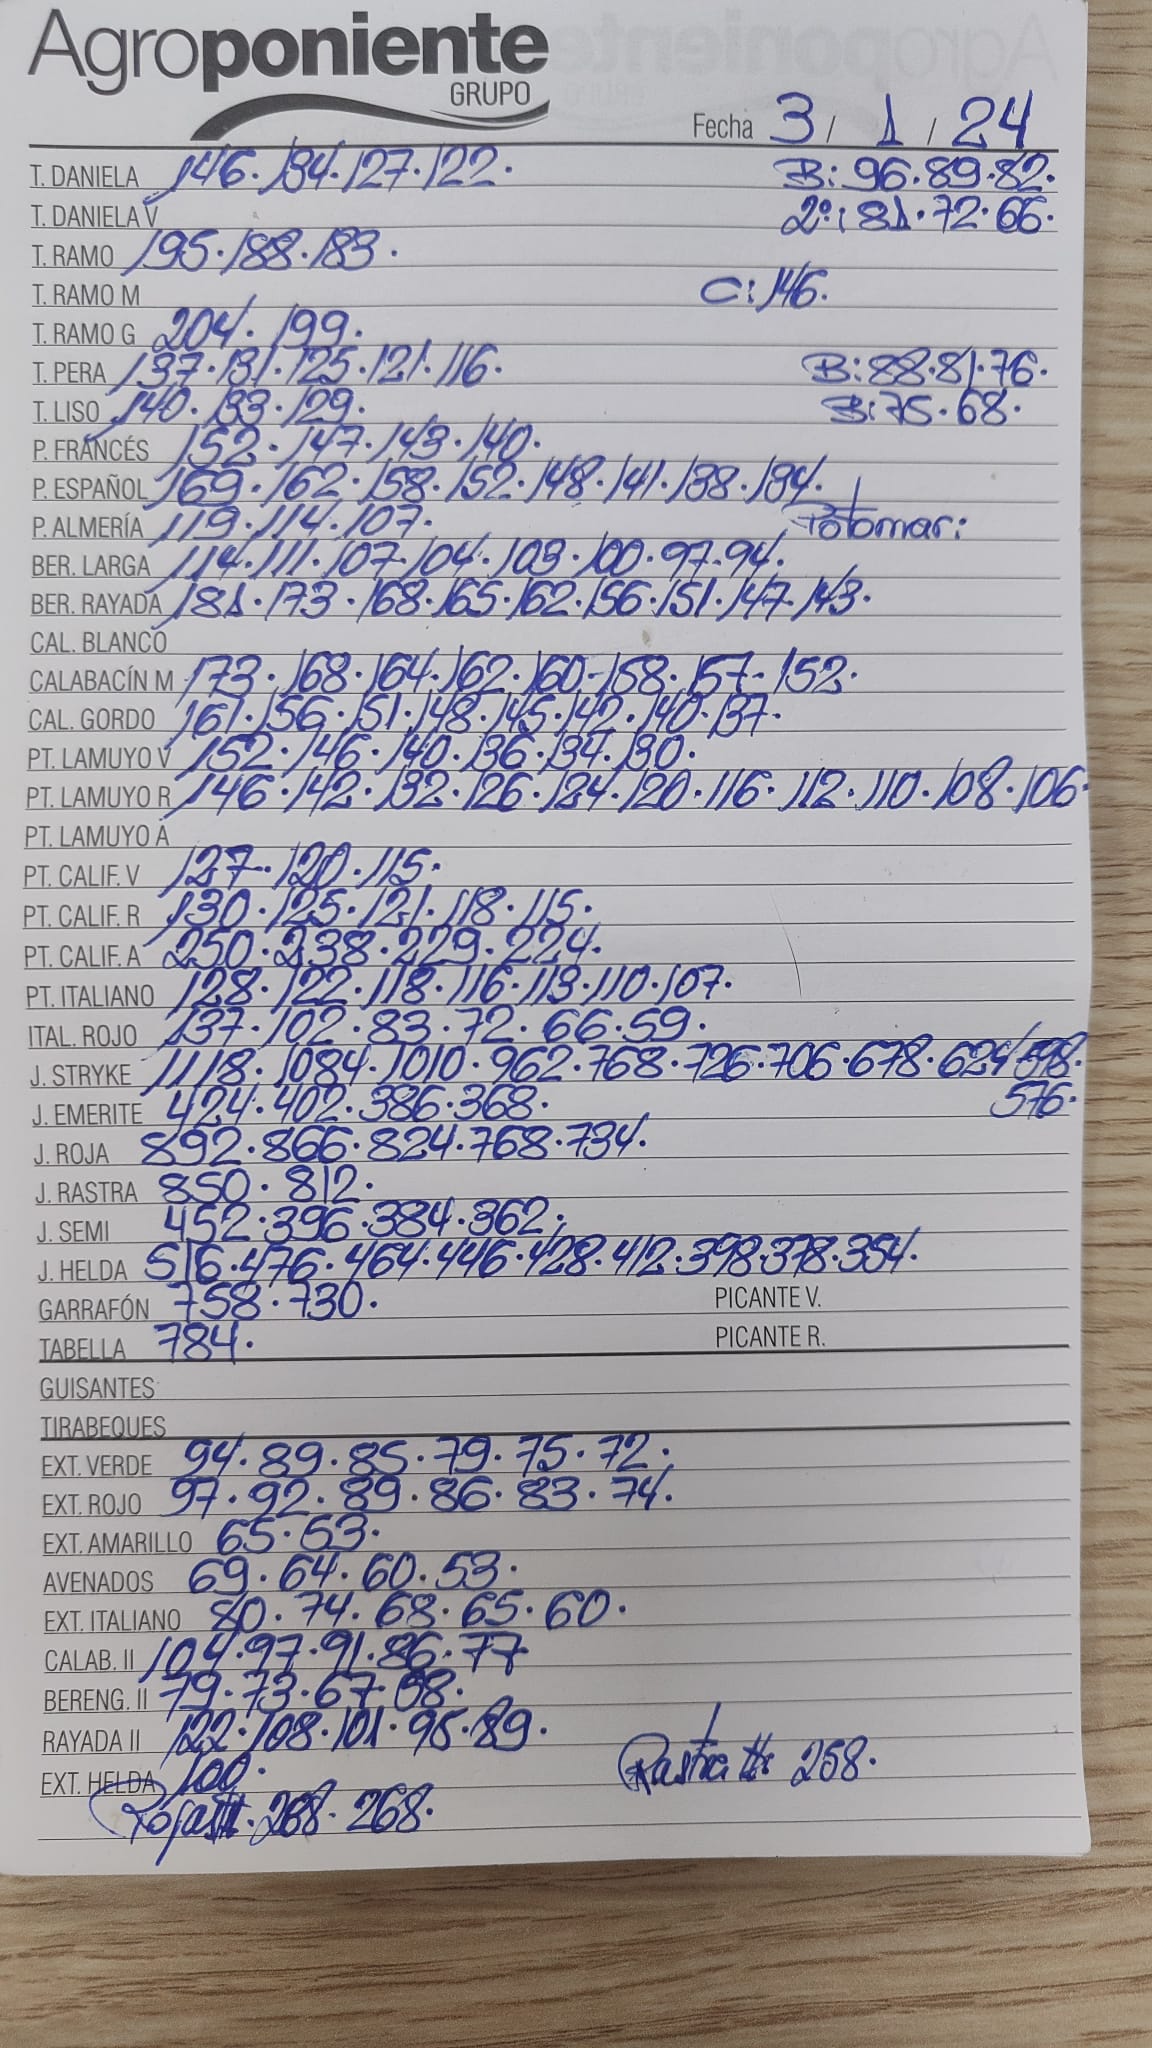 Agroponiente
GRUPO
Fecha 3 / 1 / 24
T. DANIELA 146. 134. 127. 122. B: 96. 89. 82.
T. DANIELA V 2º: 81. 72. 66.
T. RAMO 195. 188. 183.
T. RAMO M C: 146.
T. RAMO G 204. 199.
T. PERA 137. 131. 125. 121. 116. B: 88. 81. 76.
T. LISO 140. 133. 129. B: 75. 68.
P. FRANCÉS 152. 147. 143. 140.
P. ESPAÑOL 169. 162. 158. 152. 148. 141. 138. 134.
P. ALMERÍA 119. 114. 107. Potomar:
BER. LARGA 114. 111. 107. 104. 103. 100. 97. 94.
BER. RAYADA 181. 173. 168. 165. 162. 156. 151. 147. 143.
CAL. BLANCO
CALABACÍN M 173. 168. 164. 162. 160. 158. 157. 152.
CAL. GORDO 161. 156. 151. 148. 145. 142. 140. 137.
PT. LAMUYO V 152. 146. 140. 136. 134. 130.
PT. LAMUYO R 146. 142. 132. 126. 124. 120. 116. 112. 110. 108. 106.
PT. LAMUYO A
PT. CALIF. V 127. 120. 115.
PT. CALIF. R 130. 125. 121. 118. 115.
PT. CALIF. A 250. 238. 229. 224.
PT. ITALIANO 128. 122. 118. 116. 113. 110. 107.
ITAL. ROJO 137. 102. 83. 72. 66. 59.
J. STRYKE 1118. 1084. 1010. 962. 768. 726. 706. 678. 624/598.
J. EMERITE 424. 402. 386. 368. 576.
J. ROJA 892. 866. 824. 768. 734.
J. RASTRA 850. 812.
J. SEMI 452. 396. 384. 362.
J. HELDA 516. 476. 464. 446. 428. 412. 398. 378. 354.
GARRAFÓN 758. 730. PICANTE V.
TABELLA 784. PICANTE R.
GUISANTES
TIRABEQUES
EXT. VERDE 94. 89. 85. 79. 75. 72.
EXT. ROJO 97. 92. 89. 86. 83. 74.
EXT. AMARILLO 65. 53.
AVENADOS 69. 64. 60. 53.
EXT. ITALIANO 80. 74. 68. 65. 60.
CALAB. II 104. 97. 91. 86. 77
BERENG. II 79. 73. 67. 58.
RAYADA II 122. 108. 101. 95. 89.
EXT. HELDA 100. Rastra II: 258.
Roja II. 268.